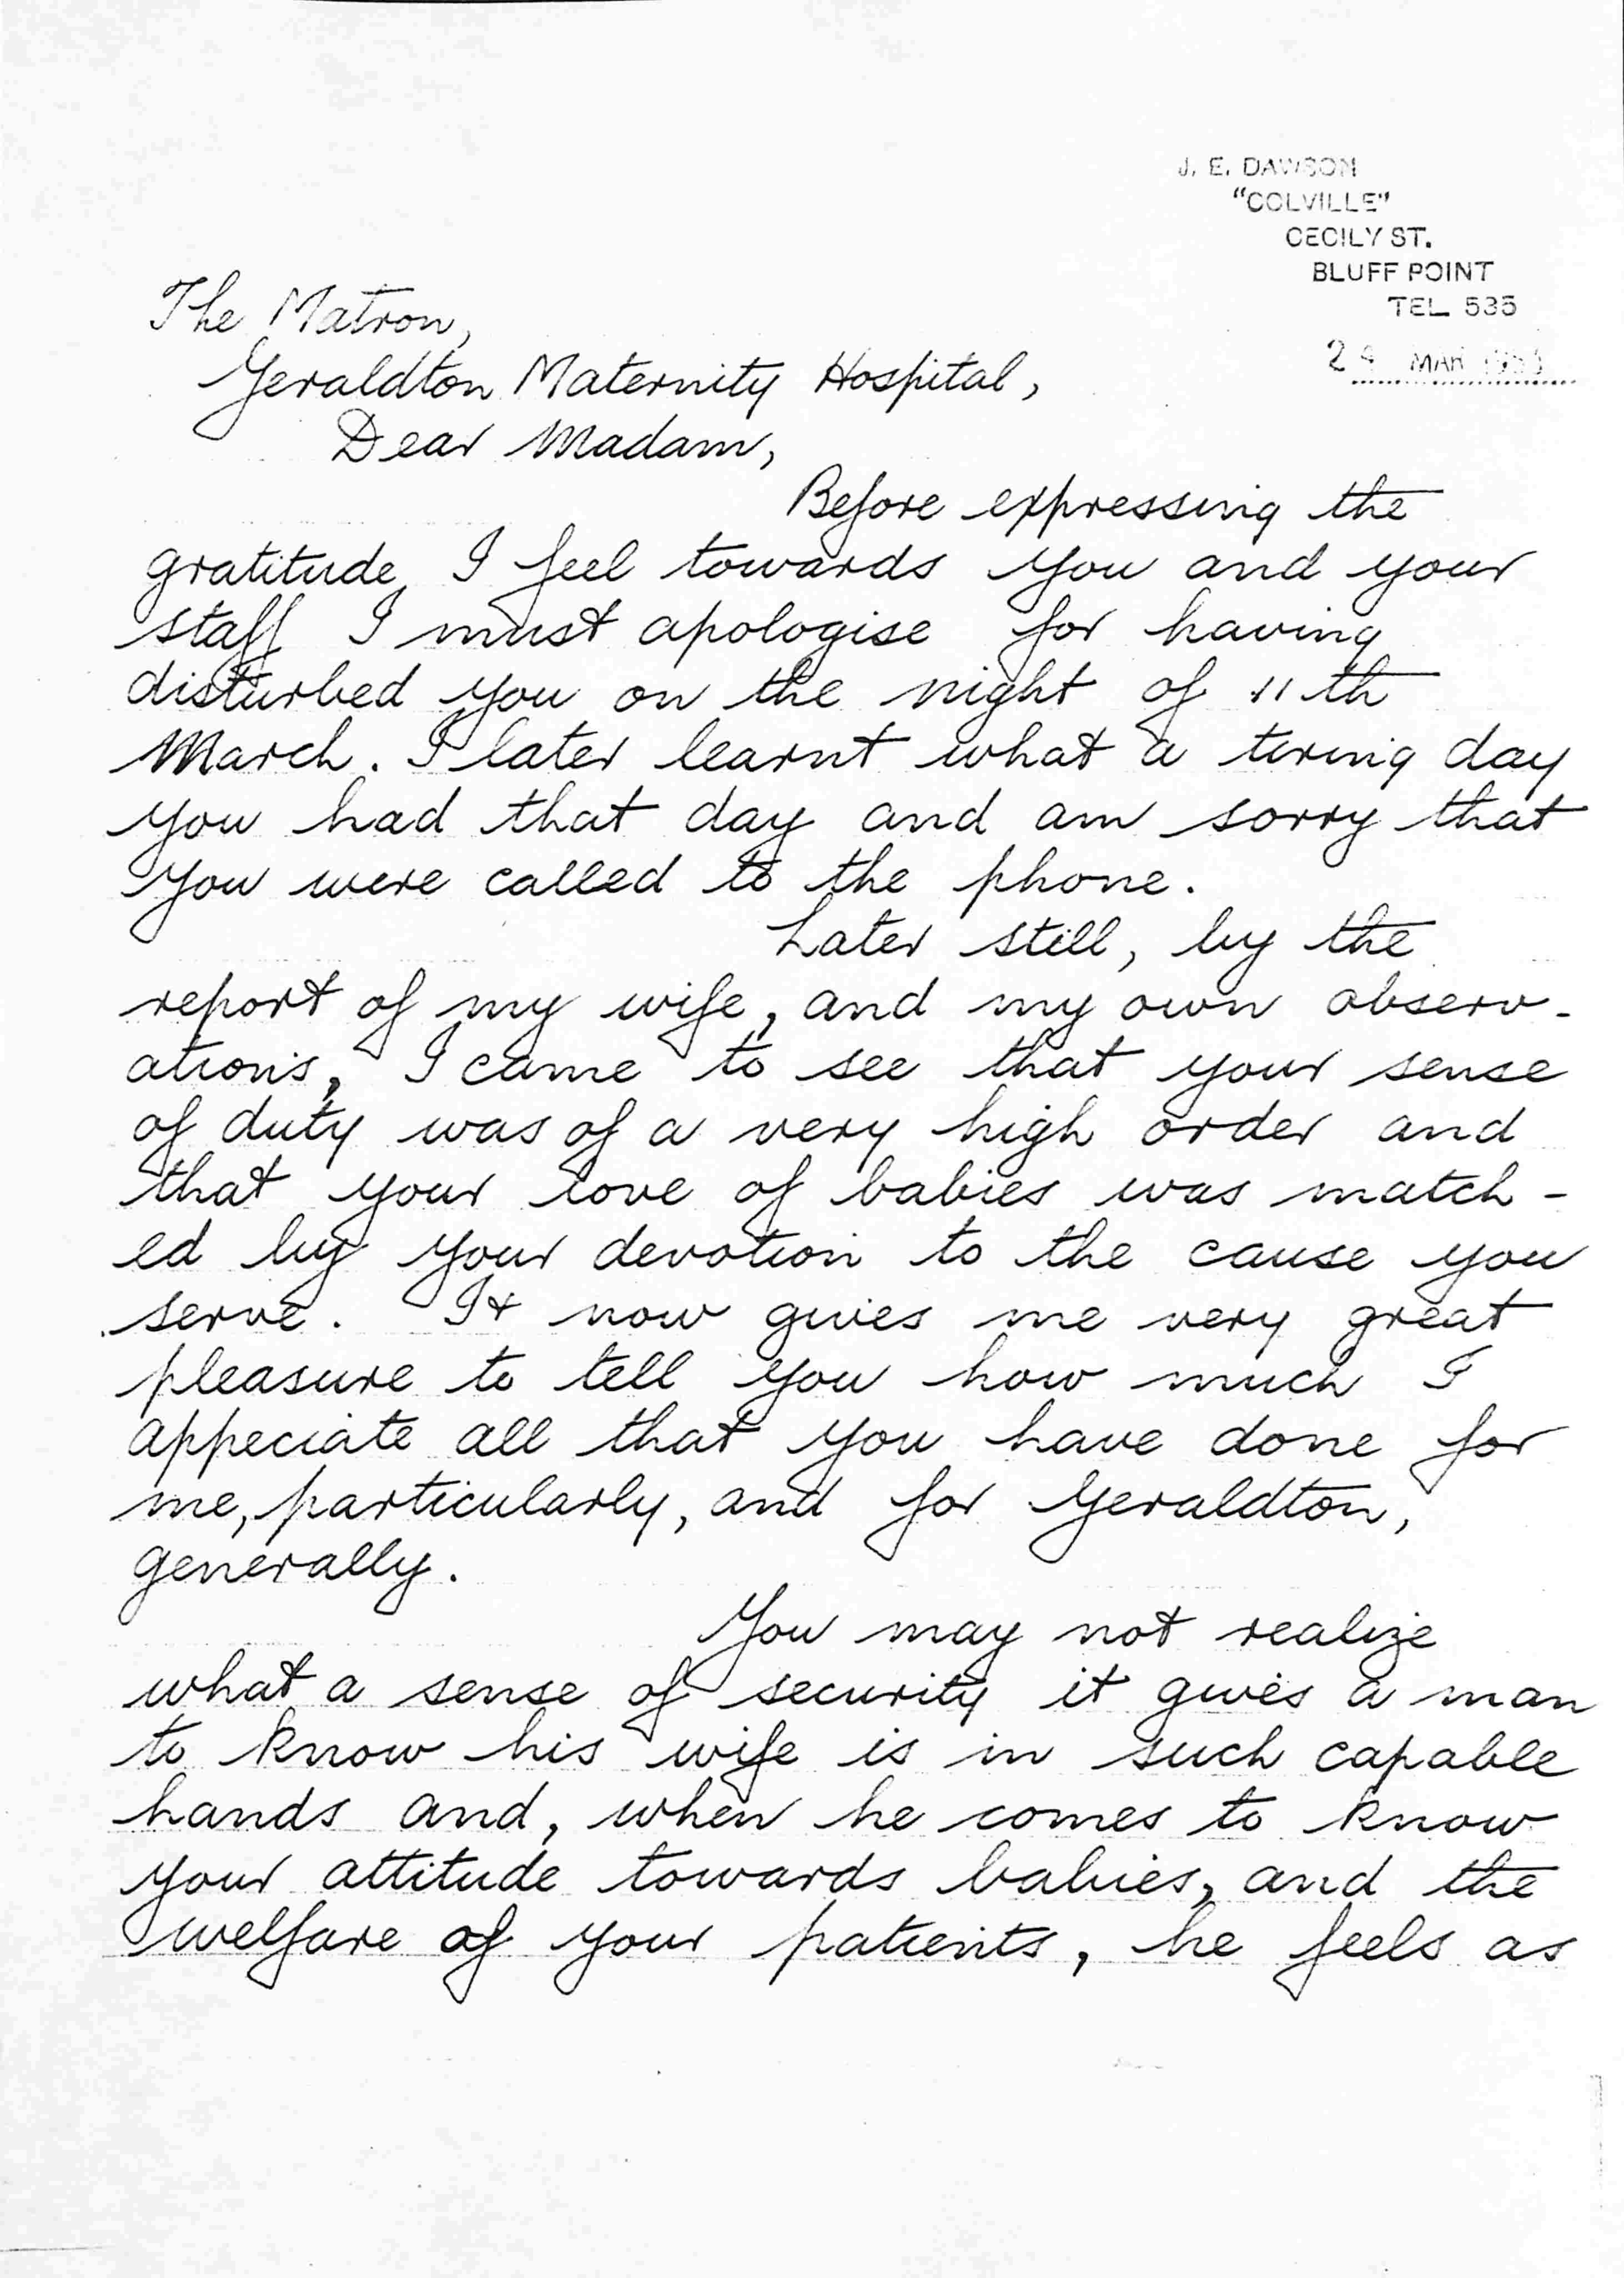 J. E. DAWSON
"COLVILLE"
CECILY ST.
BLUFF POINT
TEL 535
24 MAR
The Matron,
Geraldton Maternity Hospital,
Dear Madam,
Before expressing the
gratitude, I feel towards you and your
staff I must apologise for having
disturbed you on the night of 11th
March. I later learnt what a tiring day
you had that day and am sorry that
you were called to the phone.
Later still, by the
report of my wife, and my own observ-
ations, I came to see that your sense
of duty was of a very high order and
that your love of babies was match-
ed by your devotion to the cause you
serve. It now gives me very great
pleasure to tell you how much I
appeciate all that you have done for
me, particularly, and for Geraldton,
generally.
You may not realize
what a sense of security it gives a man
to know his wife is in such capable
hands and, when he comes to know
your attitude towards babies, and the
welfare of your patients, he feels as